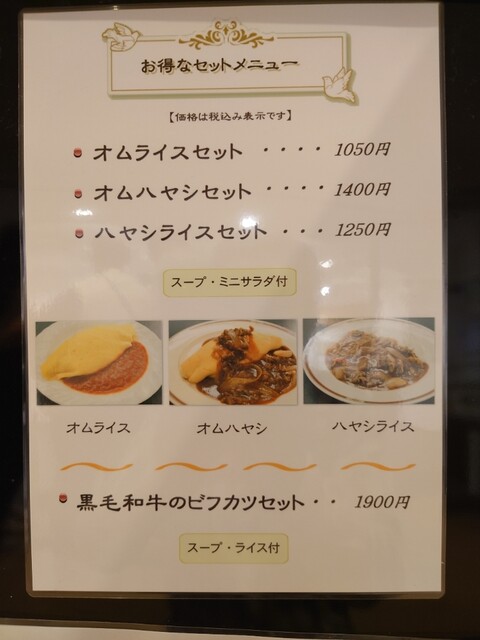 お得なセットメニュー
【価格は税込み表示です】
オムライスセット ・・・・ 1050円
オムハヤシセット ・・・・ 1400円
ハヤシライスセット ・・・ 1250円
スープ・ミニサラダ付
オムライス オムハヤシ ハヤシライス
黒毛和牛のビフカツセット ・・ 1900円
スープ・ライス付